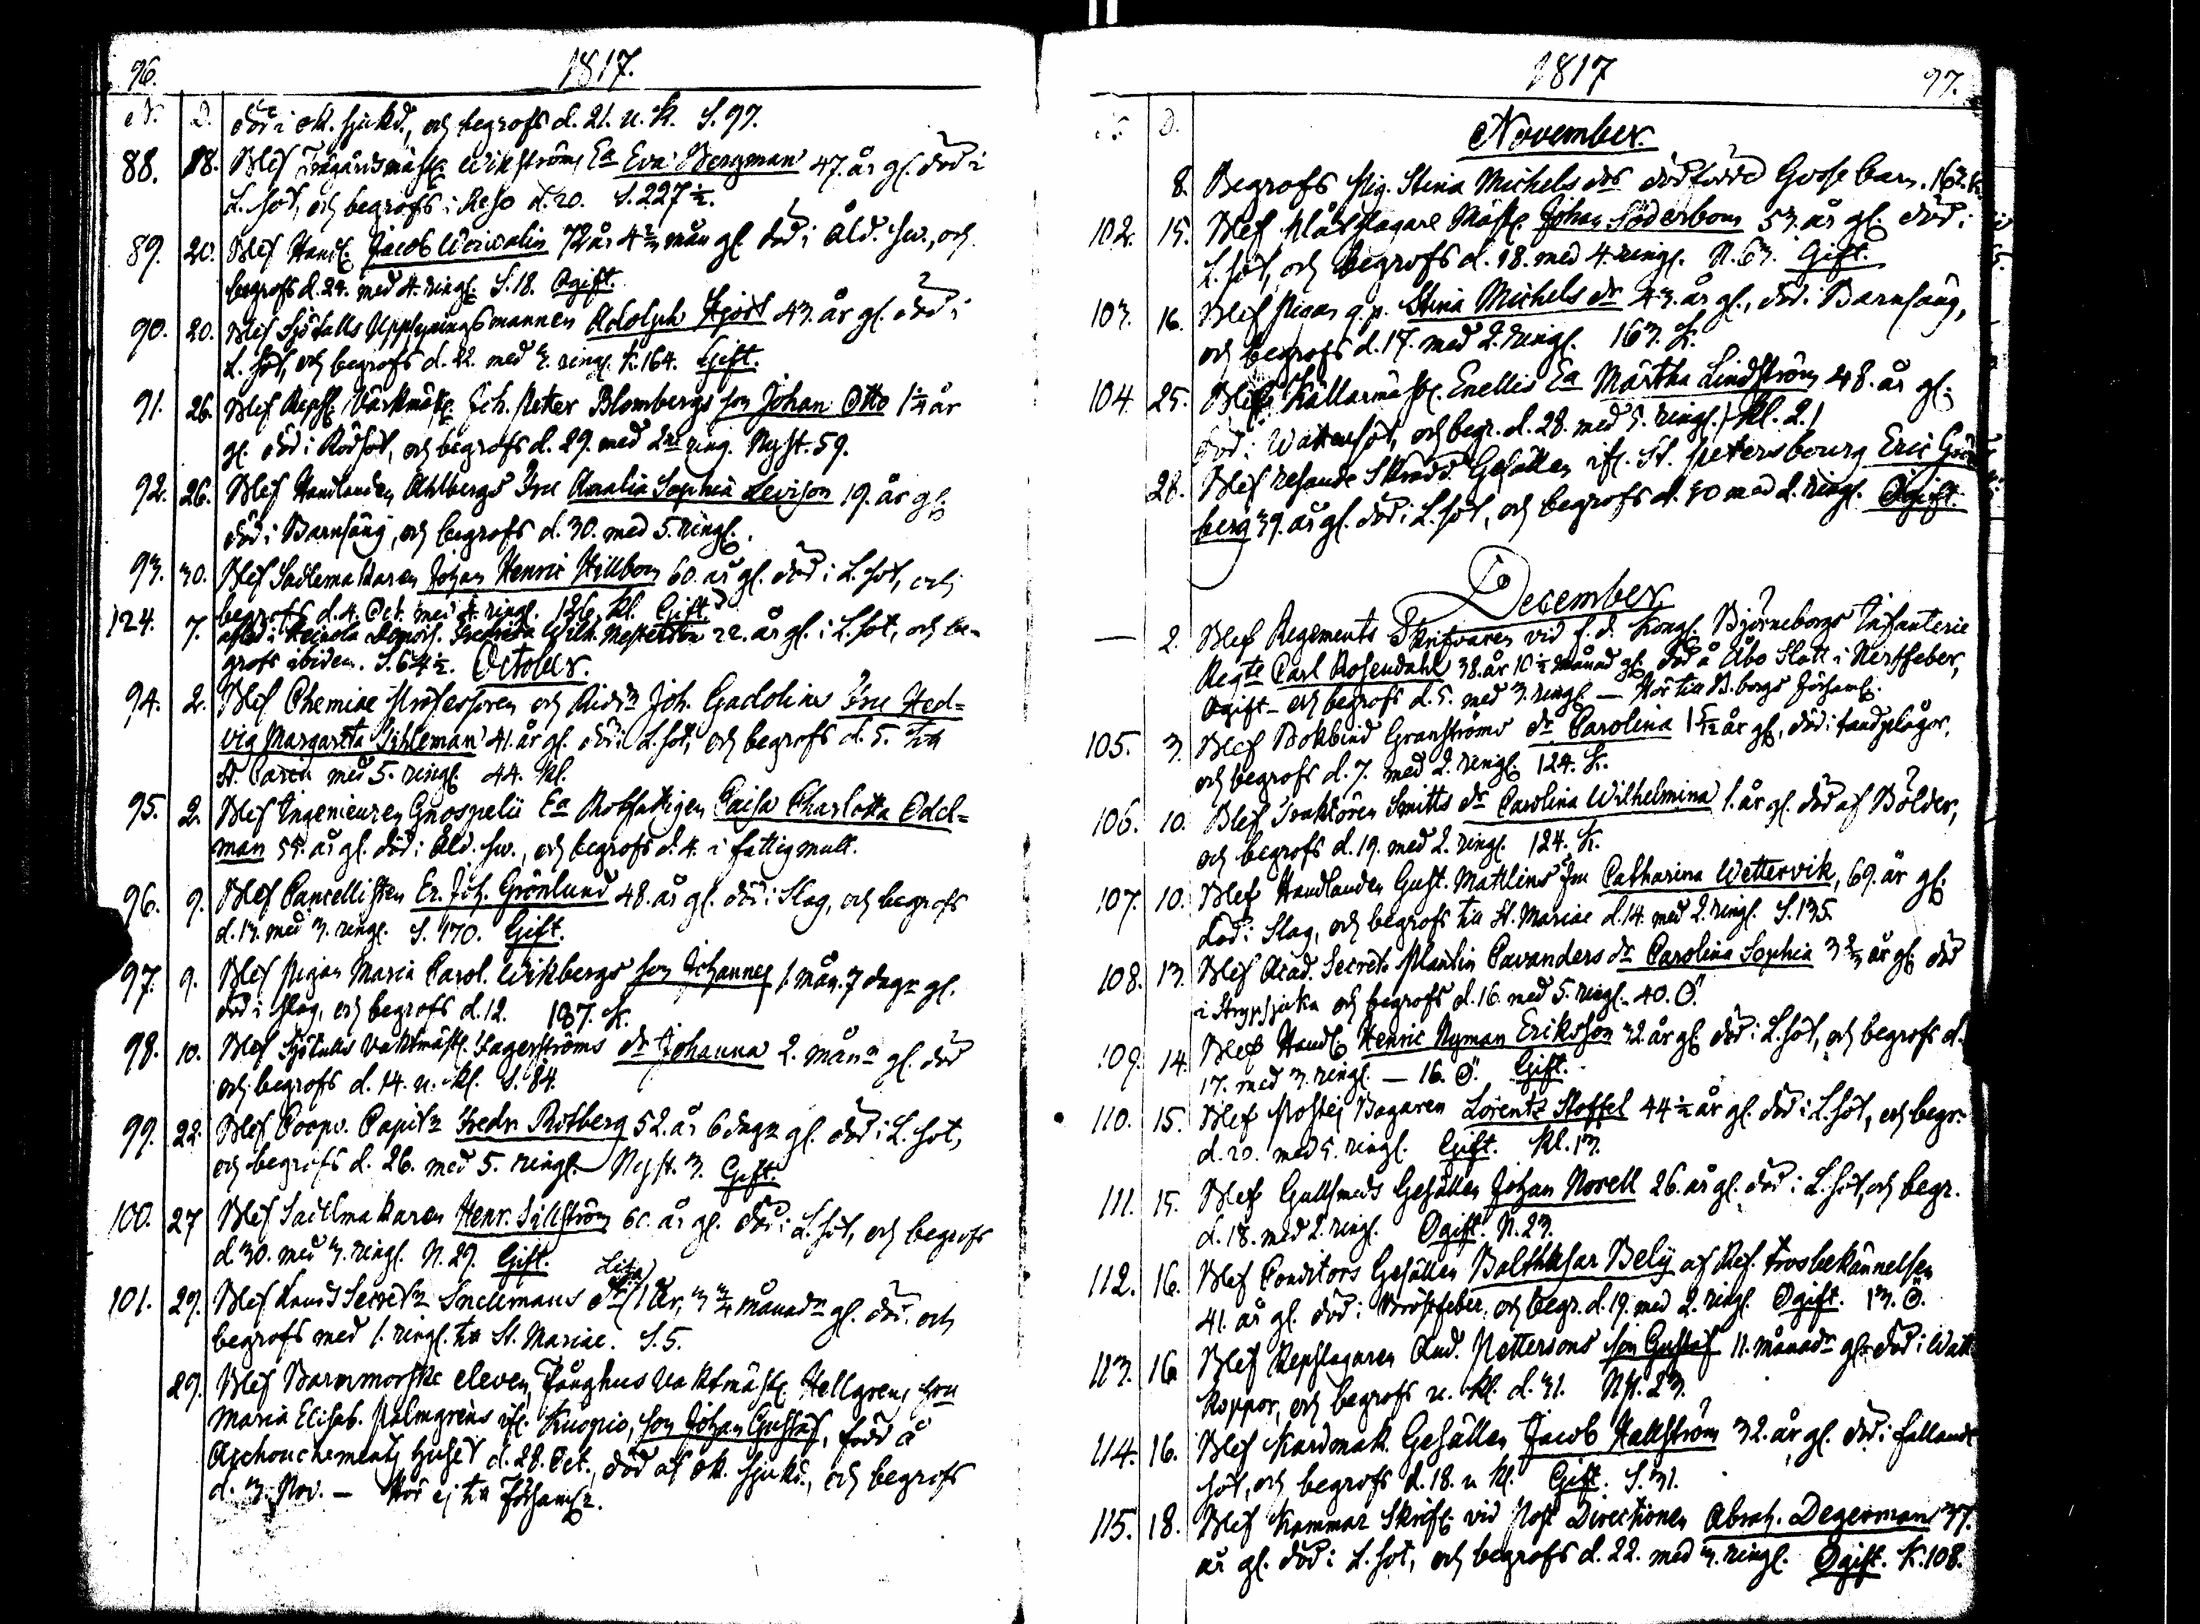 96.
1817.
N. D. död i ok. sjukd., och begrofs d. 21. u. k. S. 97.
88. 18. Blef Trägårdsmäst. Wikströms Ea Eva Bergman 47. år gl. död i
L. sot, och begrofs i Reso d. 20. S. 227 ½.
89. 20. Blef Handl. Jacob 72 år 4 mån gl. död i Åld. sw., och
begrofs d. 24. med 4. ringl. S. 18. Ogift.
90. 20. Blef Sjötulls Upsyningsmannen Adolph Hjort 43. år gl. död i
L. sot, och begrofs d. 22. med 2. ringl. K. 164. Gift.
91. 26. Blef Repsl. Värkmäst. Joh. Peter Blombergs son Johan Otto 1 ¼ år
gl. död i Rödsot, och begrofs d. 29. med 2 ring. Nyst. 59.
92. 26. Blef Handlanden Ahlbergs Fru Amalia Sophia Levison 19. år gl.
död i Barnsäng, och begrofs d. 30. med 5. ringl.
93. 30. Blef Sadlemakaren Johan Henric Hillbom 60. år gl. död i L. sot, och
begrofs d. 4. Oct. med 4. ringl. 126. Kl. Gift.
124. 7. afled i Heinola Fredrika Wilh. 22. år gl. i L. sot, och be-
grofs ibidem. S. 64 ½. October.
94. 2. Blef Chemiae Professoren och Ridr Joh. Gadolins Fru Hed-
vig Margareta Tihleman 41. år gl. död i L. sot, och begrofs d. 5. till
St. Carin med 5. ringl. 44. Kl.
95. 2. Blef Ingenieuren Gnospelii Ea Rotfattigen Caisa Charlotta Odel-
man 55. år gl. död i Åld. sw., och begrofs d. 4. i fattigmull.
96. 9. Blef Cancellisten Er. Joh. Grönlund 48. år gl. död i Slag, och begrofs
d. 13. med 3. ringl. S. 170. Gift.
97. 9. Blef Pigan Maria Carol. Wikbergs son Johannes 1. mån. 7 dagr gl.
död i slag, och begrofs d. 12. 187. K.
98. 10. Blef Sjötulls Vaktmäst. Fagerströms dr Johanna 2. månr gl. död
och begrofs d. 14. u. kl. S. 84.
99. 22. Blef Coopv. Capitn Fredr Rotberg 52. år 6 dagr gl. död i L. sot,
och begrofs d. 26. med 5. ringl. Nyst. 3. Gift.
100. 27 Blef Sadlmakaren Henr. Sillström 60. år gl. död i L. sot, och begrofs
d. 30. med 3. ringl. N. 29. Gift.
101. 29. Blef Lands Secretn Snellmans dr Lisa 1 år, 3 ¾ månadr gl. död. och
begrofs med 1. ringl. till St. Mariae. S. 5.
29. Blef Barnmorske eleven Tånghus Vaktmäst. Hellgrens hon
Maria Elisab. Palmgrens ifr. Kuopio, son Johan Gustaf, född å
Accouchements huset d. 28. Oct., död af ok. sjukd., och begrofs
d. 3. Nov. — Hör ej till Församln.
1817
97.
N. D.
November.
8. Begrofs Pig. Stina Michels drs dödfödde Gosse barn. 163. K.
102. 15. Blef Klåckagare Mäst. Johan Söderbom 53. år gl. död i
L. sot, och begrofs d. 18. med 4. ringl. N. 63. Gift.
103. 16. Blef Pigan q. p. Stina Michels dr 43. år gl., död i Barnsäng,
och begrofs d. 17. med 2. ringl. 163. K.
104. 25. Blef Källarmäst. Enellis Ea Märtha Lindström 48. år gl.
död i Wattusot, och begr. d. 28. med 5. ringl. Kl. 2.
28. Blef resande Skrädd. Gesällen ifr. St. Petersbourg Eric
berg 39. år gl. död i L. sot, och begrofs d. 30 med 2. ringl. Ogift.
December
— 2. Blef Regements Skrifvaren vid f. d. Kongl. Björneborgs Infanterie
Regte Carl Rosendahl 38. år 10 ½ månad gl. död å Åbo Slott i Nerffeber,
Ogift — och begrofs d. 5. med 3. ringl. — Hör till B.borgs Församl.
105. 3. Blef Bokbind Granströms dr Carolina 1 år gl., död i tandplågor,
och begrofs d. 7. med 2. ringl. 124. K.
106. 10. Blef Traktören Smitts dr Carolina Wilhelmina 1. år gl. död af Bölder,
och begrofs d. 19. med 2. ringl. 124. K.
107. 10. Blef Handlanden Gust. Matlins Fru Catharina Wettervik, 69. år gl.
död i Slag, och begrofs till St. Mariae d. 14. med 2. ringl. S. 135.
108. 13. Blef Acad. Secret. Martin Cavanders dr Carolina Sophia 3 år gl. död
i Strypsjuka och begrofs d. 16. med 5. ringl. 40. Ö.
109. 14. Blef Handl. Henric Nyman Eriksson 32. år gl. död i L. sot, och begrofs d.
17. med 3. ringl. — 16. Ö. Gift.
110. 15. Blef Postej Bagaren Lorentz Stoffel 44 ½ år gl. död i L. sot, och begr.
d. 20. med 5. ringl. Gift. Kl. 13.
111. 15. Blef Gullsmeds Gesällen Johan Norell 26. år gl. död i L. sot, och begr.
d. 18. med 2. ringl. Ogift. N. 23.
112. 16. Blef Conditors Gesällen Balthasar Bely af Ref. Trosbekännelsen
41. år gl. död i Bröstfeber, och begr. d. 19. med 2. ringl. Ogift. 13. Ö.
113. 16 Blef Repslagaren And. Pettersons son Gustaf 11. månadr gl. död i Watt
koppor, och begrofs u. kl. d. 31. Nst. 23.
114. 16. Blef Kardmak. Gesällen Jacob Hallström 32. år gl. död i fallande
sot, och begrofs d. 18. u kl. Gift. S. 31.
115. 18. Blef Kammar Skrifv. vid Post Directionen Abrah. Degerman 37.
år gl. död i L. sot, och begrofs d. 22. med 3. ringl. Ogift. K. 108.